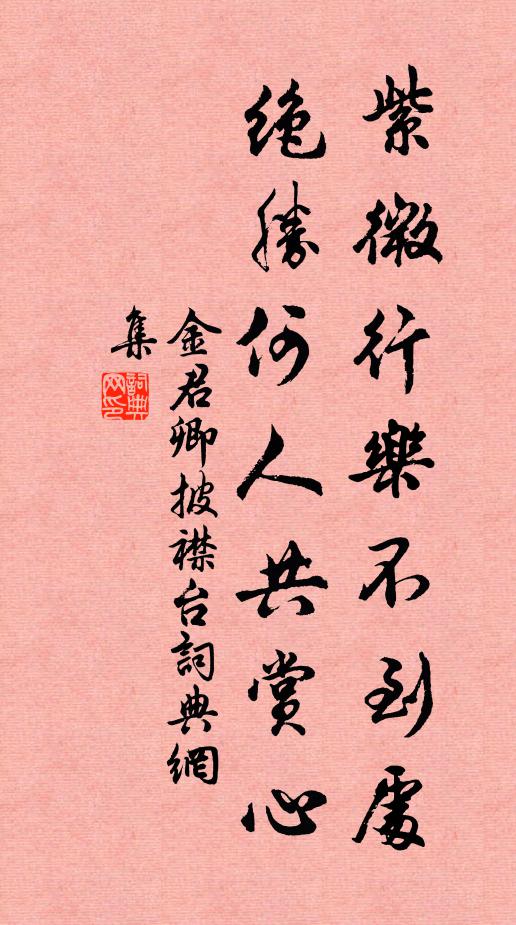 紫微行樂不到處
絶勝何人共賞心
金君卿披襟台詞典網
集
詞典
网印